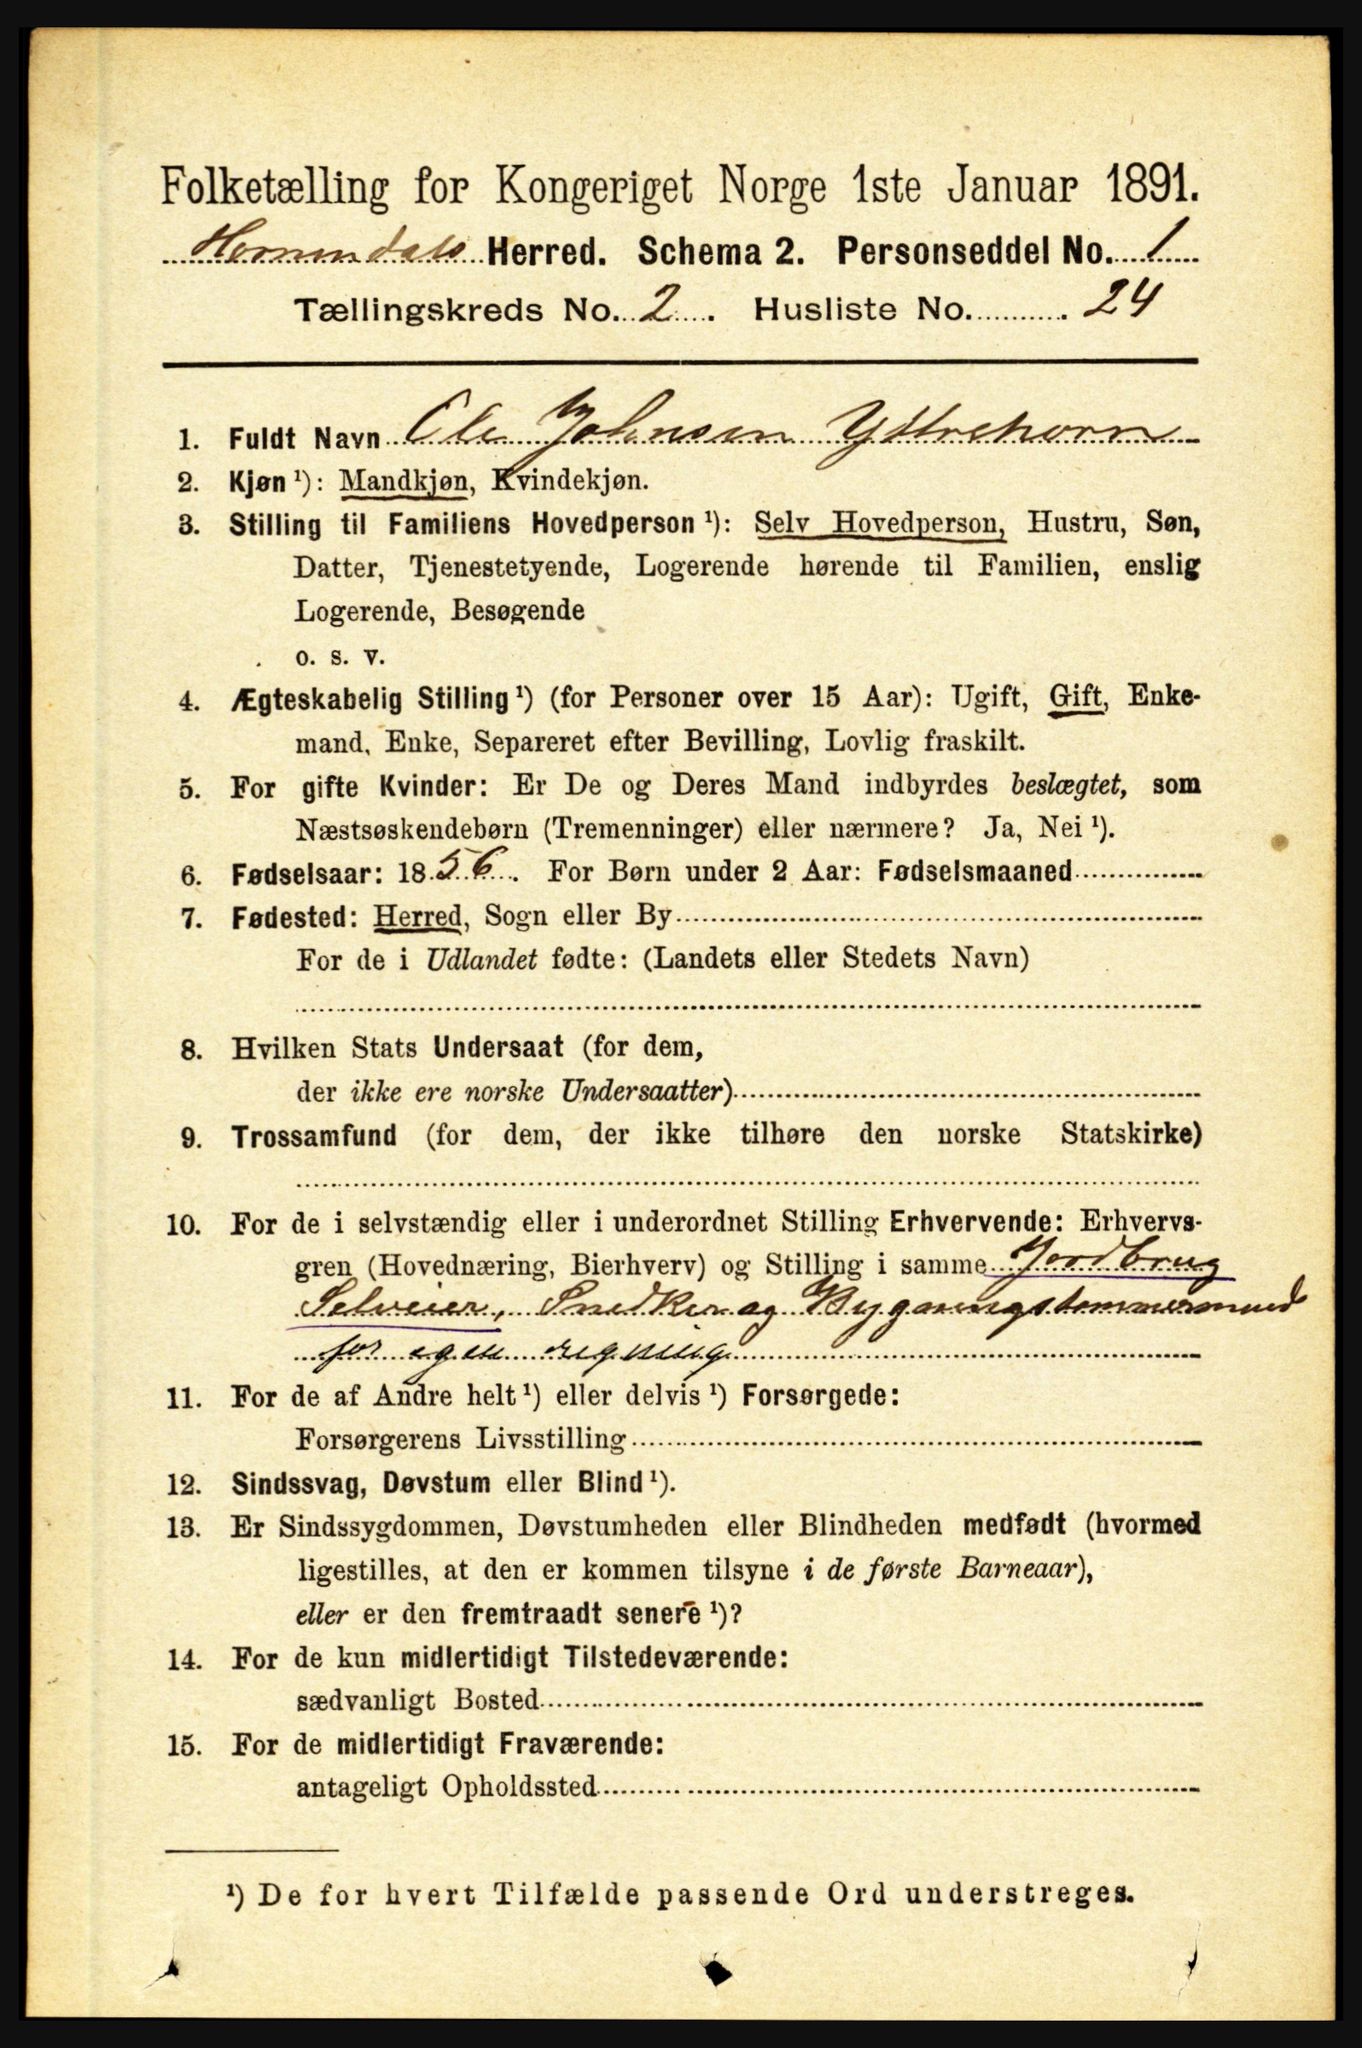 Folketælling for Kongeriget Norge 1ste Januar 1891.
Hornindals Herred. Schema 2. Personseddel No. 1
Tællingskreds No. 2. Husliste No. 24
1. Fuldt Navn Ole Johnsen Ydtrehorn
2. Kjøn ¹): Mandkjøn, Kvindekjøn.
3. Stilling til Familiens Hovedperson ¹): Selv Hovedperson, Hustru, Søn,
Datter, Tjenestetyende, Logerende hørende til Familien, enslig
Logerende, Besøgende
o. s. v.
4. Ægteskabelig Stilling ¹) (for Personer over 15 Aar): Ugift, Gift, Enke-
mand, Enke, Separeret efter Bevilling, Lovlig fraskilt.
5. For gifte Kvinder: Er De og Deres Mand indbyrdes beslægtet, som
Næstsøskendebørn (Tremenninger) eller nærmere? Ja, Nei ¹).
6. Fødselsaar: 1856. For Børn under 2 Aar: Fødselsmaaned
7. Fødested: Herred, Sogn eller By
For de i Udlandet fødte: (Landets eller Stedets Navn)
8. Hvilken Stats Undersaat (for dem,
der ikke ere norske Undersaatter)
9. Trossamfund (for dem, der ikke tilhøre den norske Statskirke)
10. For de i selvstændig eller i underordnet Stilling Erhvervende: Erhvervs-
gren (Hovednæring, Bierhverv) og Stilling i samme Jordbrug
Selveier, Snedker og Bygningstømmermand
for egen regning
11. For de af Andre helt ¹) eller delvis ¹) Forsørgede:
Forsørgerens Livsstilling
12. Sindssvag, Døvstum eller Blind ¹).
13. Er Sindssygdommen, Døvstumheden eller Blindheden medfødt (hvormed
ligestilles, at den er kommen tilsyne i de første Barneaar),
eller er den fremtraadt senere ¹)?
14. For de kun midlertidigt Tilstedeværende:
sædvanligt Bosted
15. For de midlertidigt Fraværende:
antageligt Opholdssted
¹) De for hvert Tilfælde passende Ord understreges.